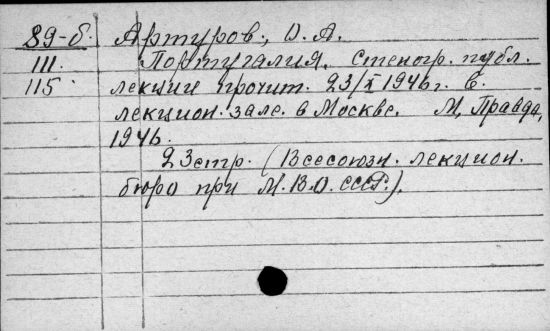 89-б. Артуров, О. А.
111. Португалия. Стеногр. публ.
115 лекции прочит. 23/X 1946 г. в.
лекцион. зале. в Москве. М, Правда,
1946.
23 стр. (Всесоюзн. лекцион.
бюро при М.В.О. СССР.).